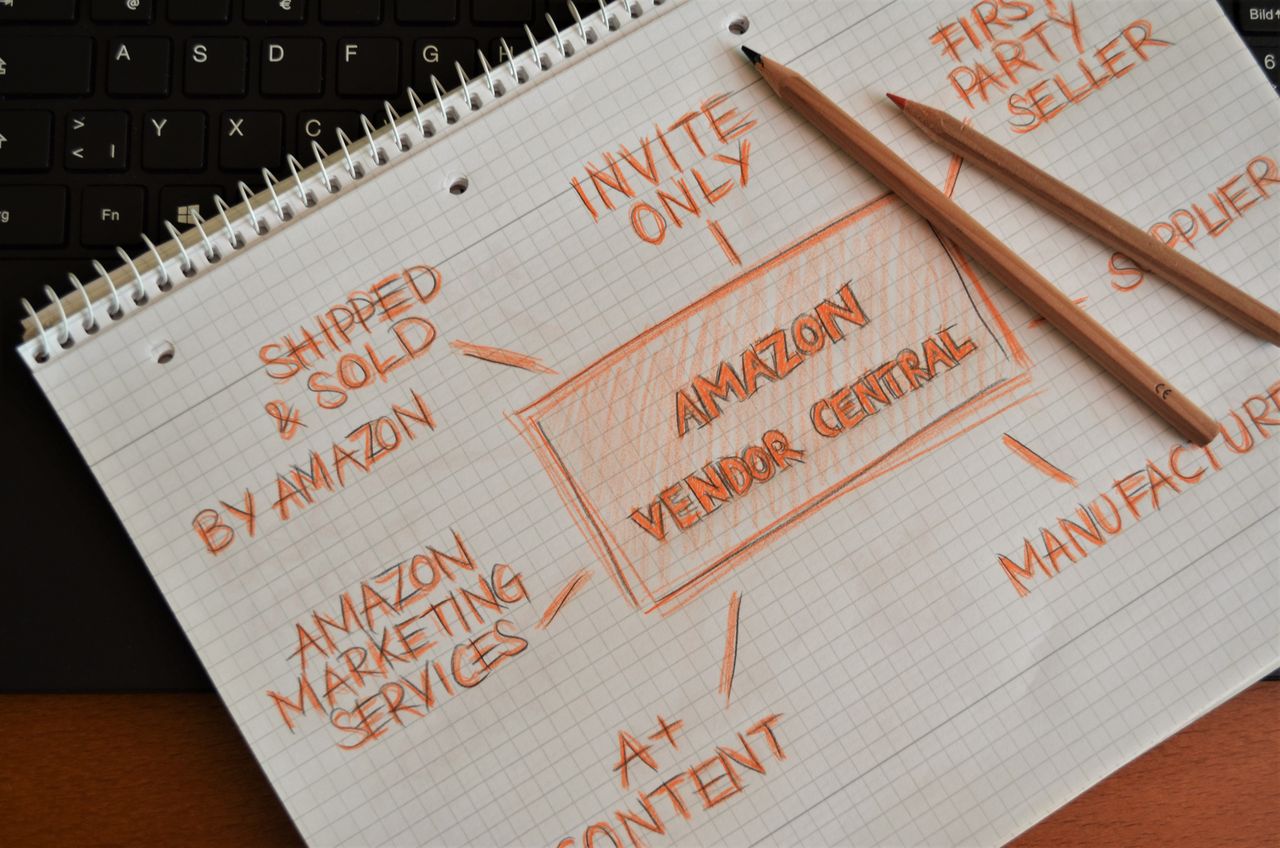 A S D F G H
Y X C
Fn
Bild
6
FIRST
PARTY
SELLER
INVITE
ONLY
SUPPLIER
SHIPPED
& SOLD
BY AMAZON
AMAZON
VENDOR CENTRAL
MANUFACTURE
AMAZON
MARKETING
SERVICES
A+
CONTENT